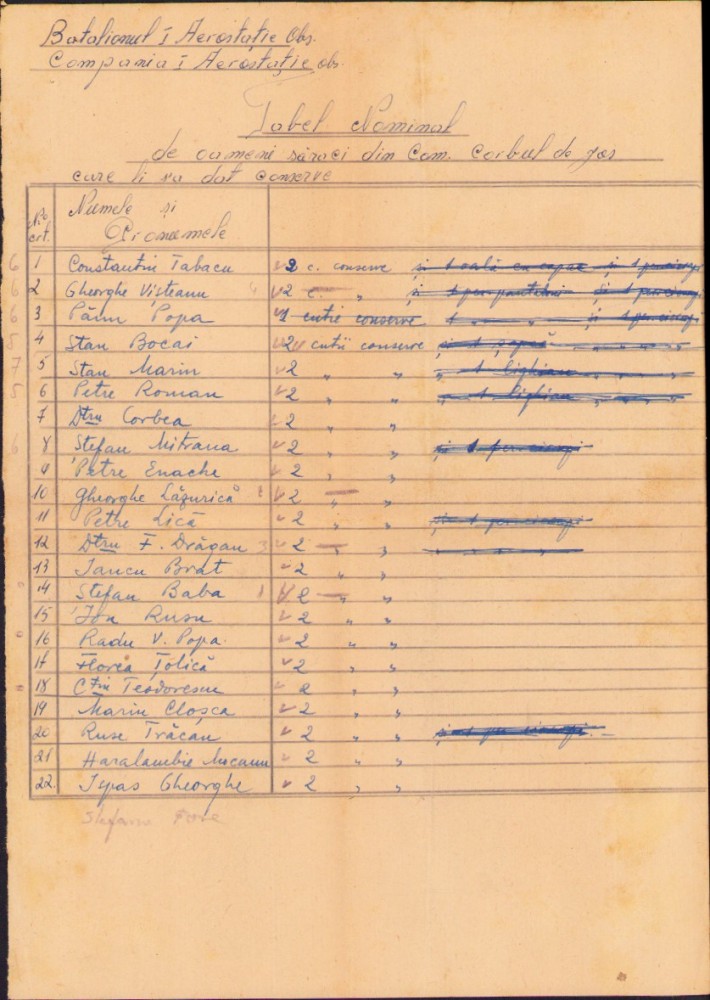 Batalionul I Aerostație Obs.
Compania I Aerostație obs.
Tabel Nominal
de oameni săraci din Com. Corbul de jos
care li sa dat conserve
No. crt. Numele și Pronumele
6 1 Constantin Tabacu 2 c. conserve și 1 oală cu capac și 1 per ciorapi
6 2 Gheorghe Visteanu 2 c. " și 1 per pantaloni și 1 per ciorapi
6 3 Pănu Popa 1 cutie conserve 1 " " și 1 per ciorapi
5 4 Stan Bocai 2 cutii conserve și 1
7 5 Stan Marin 2 " " 1 lighian " "
5 6 Petre Roman 2 " " 1 lighian " "
7 Dtru Corbea 2 " "
6 8 Ștefan Mitrana 2 " " și 1 per ciorapi
9 Petre Enache 2 " "
10 Gheorghe Lăzurică 2 " "
11 Petre Lică 2 " " și 1 per ciorapi
12 Dtru F. Drăgan 3 2 " "
13 Iancu Brat 2 " "
14 Ștefan Baba 2 " "
15 Ion Rusu 2 " "
16 Radu V. Popa 2 " "
17 Florea Țolică 2 " "
18 Ctin Teodorescu 2 " "
19 Marin Cloșca 2 " "
20 Ruse Trăcan 2 " " și 1 per ciorapi
21 Haralambie Mocanu 2 " "
22. Ispas Gheorghe 2 " "